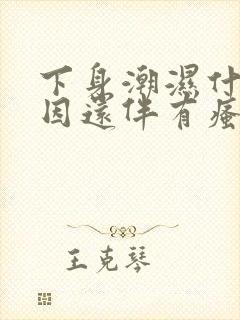 下身潮濕什
因還伴有瘙
王克琴